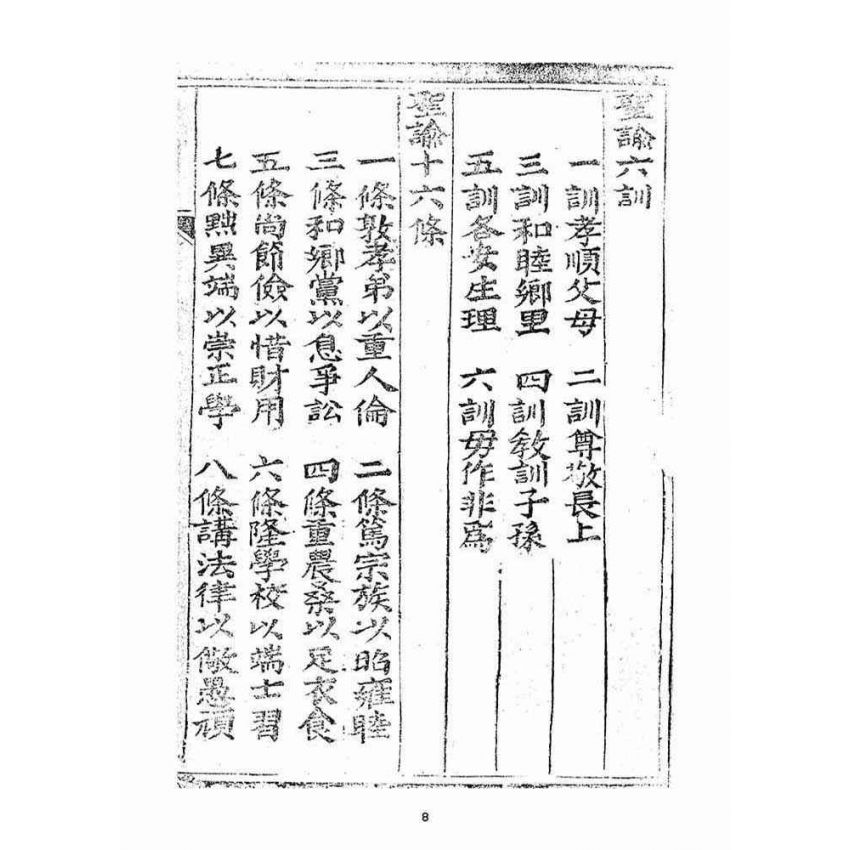 聖諭六訓
一訓孝順父母 二訓尊敬長上
三訓和睦鄉里 四訓教訓子孫
五訓各安生理 六訓毋作非為
聖諭十六條
一條敦孝弟以重人倫 二條篤宗族以昭雍睦
三條和鄉黨以息爭訟 四條重農桑以足衣食
五條尚節儉以惜財用 六條隆學校以端士習
七條黜異端以崇正學 八條講法律以儆愚頑
8